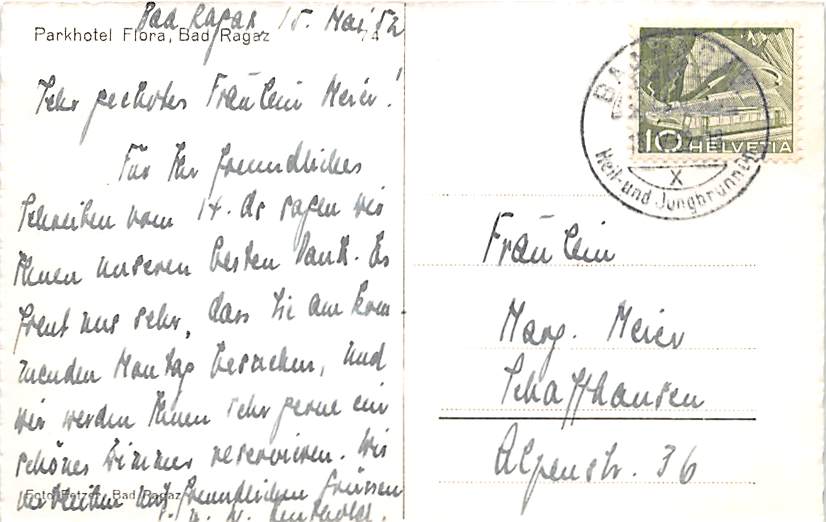 Bad Ragaz, 15. Mai 52
Parkhotel Flora, Bad Ragaz
Sehr geehrtes Fräulein Meier!
Für Ihr freundliches
Schreiben vom 14. ds sagen wir
Ihnen unseren besten Dank. Es
freut uns sehr, dass Sie am kom-
menden Montag besuchen, und
wir werden Ihnen sehr gerne ein
schönes Zimmer reservieren. Wir
verbleiben mit freundlichen Grüssen
Foto Fetzer, Bad Ragaz
BAD RAGAZ
10 HELVETIA
X
Heil- und Jungbrunnen
Fräulein
Marg. Meier
Schaffhausen
Alpenstr. 36